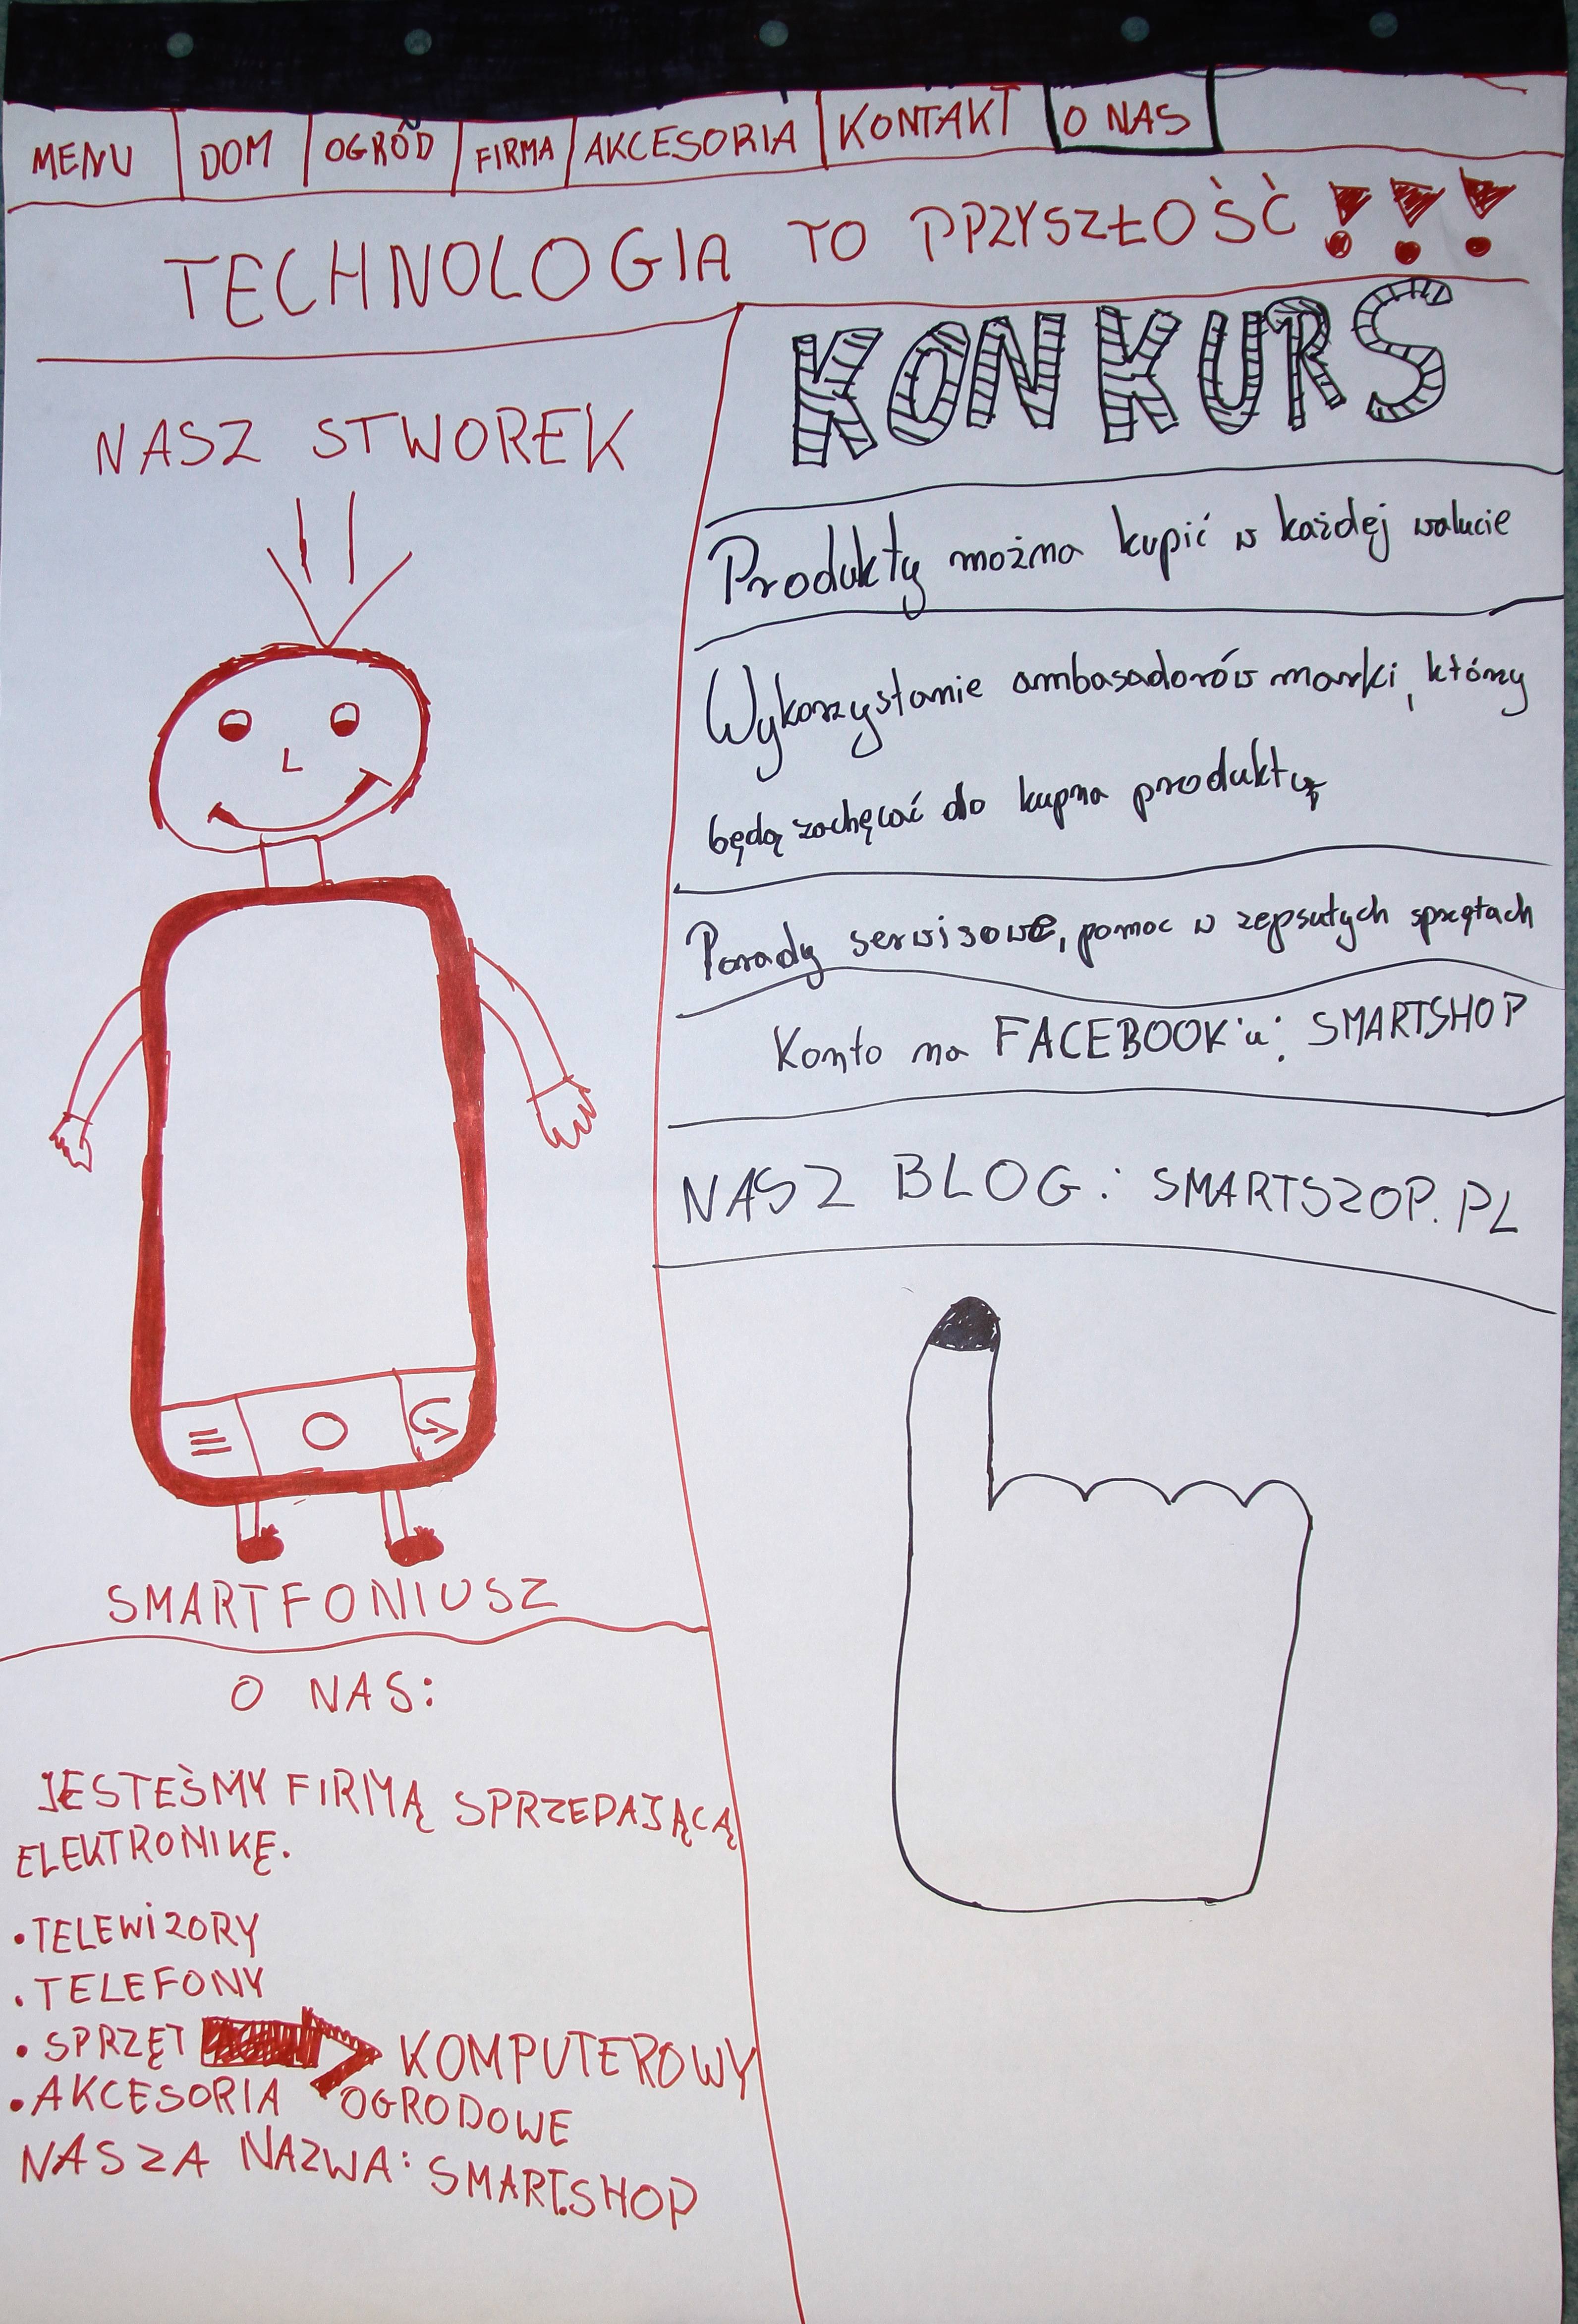 MENU DOM OGRÓD FIRMA AKCESORIA KONTAKT O NAS
TECHNOLOGIA TO PPZYSZŁOŚĆ !!!
NASZ STWOREK
SMARTFONIUSZ
O NAS:
JESTEŚMY FIRMĄ SPRZEDAJĄCĄ
ELEKTRONIKĘ.
• TELEWiZORY
• TELEFONY
• SPRZĘT KOMPUTEROWY
• AKCESORIA OGRODOWE
NASZA NAZWA: SMART.SHOP
KONKURS
Produkty można kupić w każdej walucie
Wykorzystanie ambasadorów marki, którzy
będą zachęcać do kupna produktu
Porady serwisowe, pomoc w zepsutych sprzętach
Konto na FACEBOOK'u: SMARTSHOP
NASZ BLOG: SMARTSZOP.PL